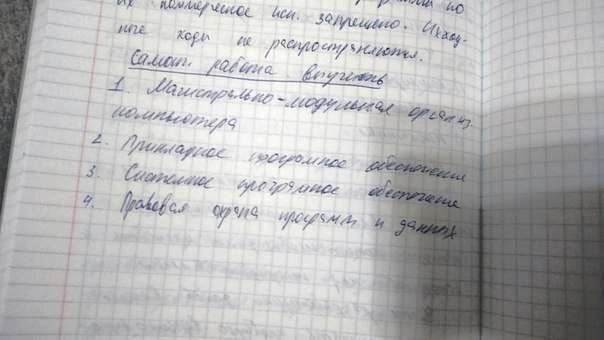 их коммерческое исп. запрещено. Исход-
ные коды не распространяются.
Самост. работа
1. Магистрально-модульная организ.
компьютера
2. Прикладное програмное обеспечение
3. Системное програмное обеспечение
4. Правовая охрана программ и данных